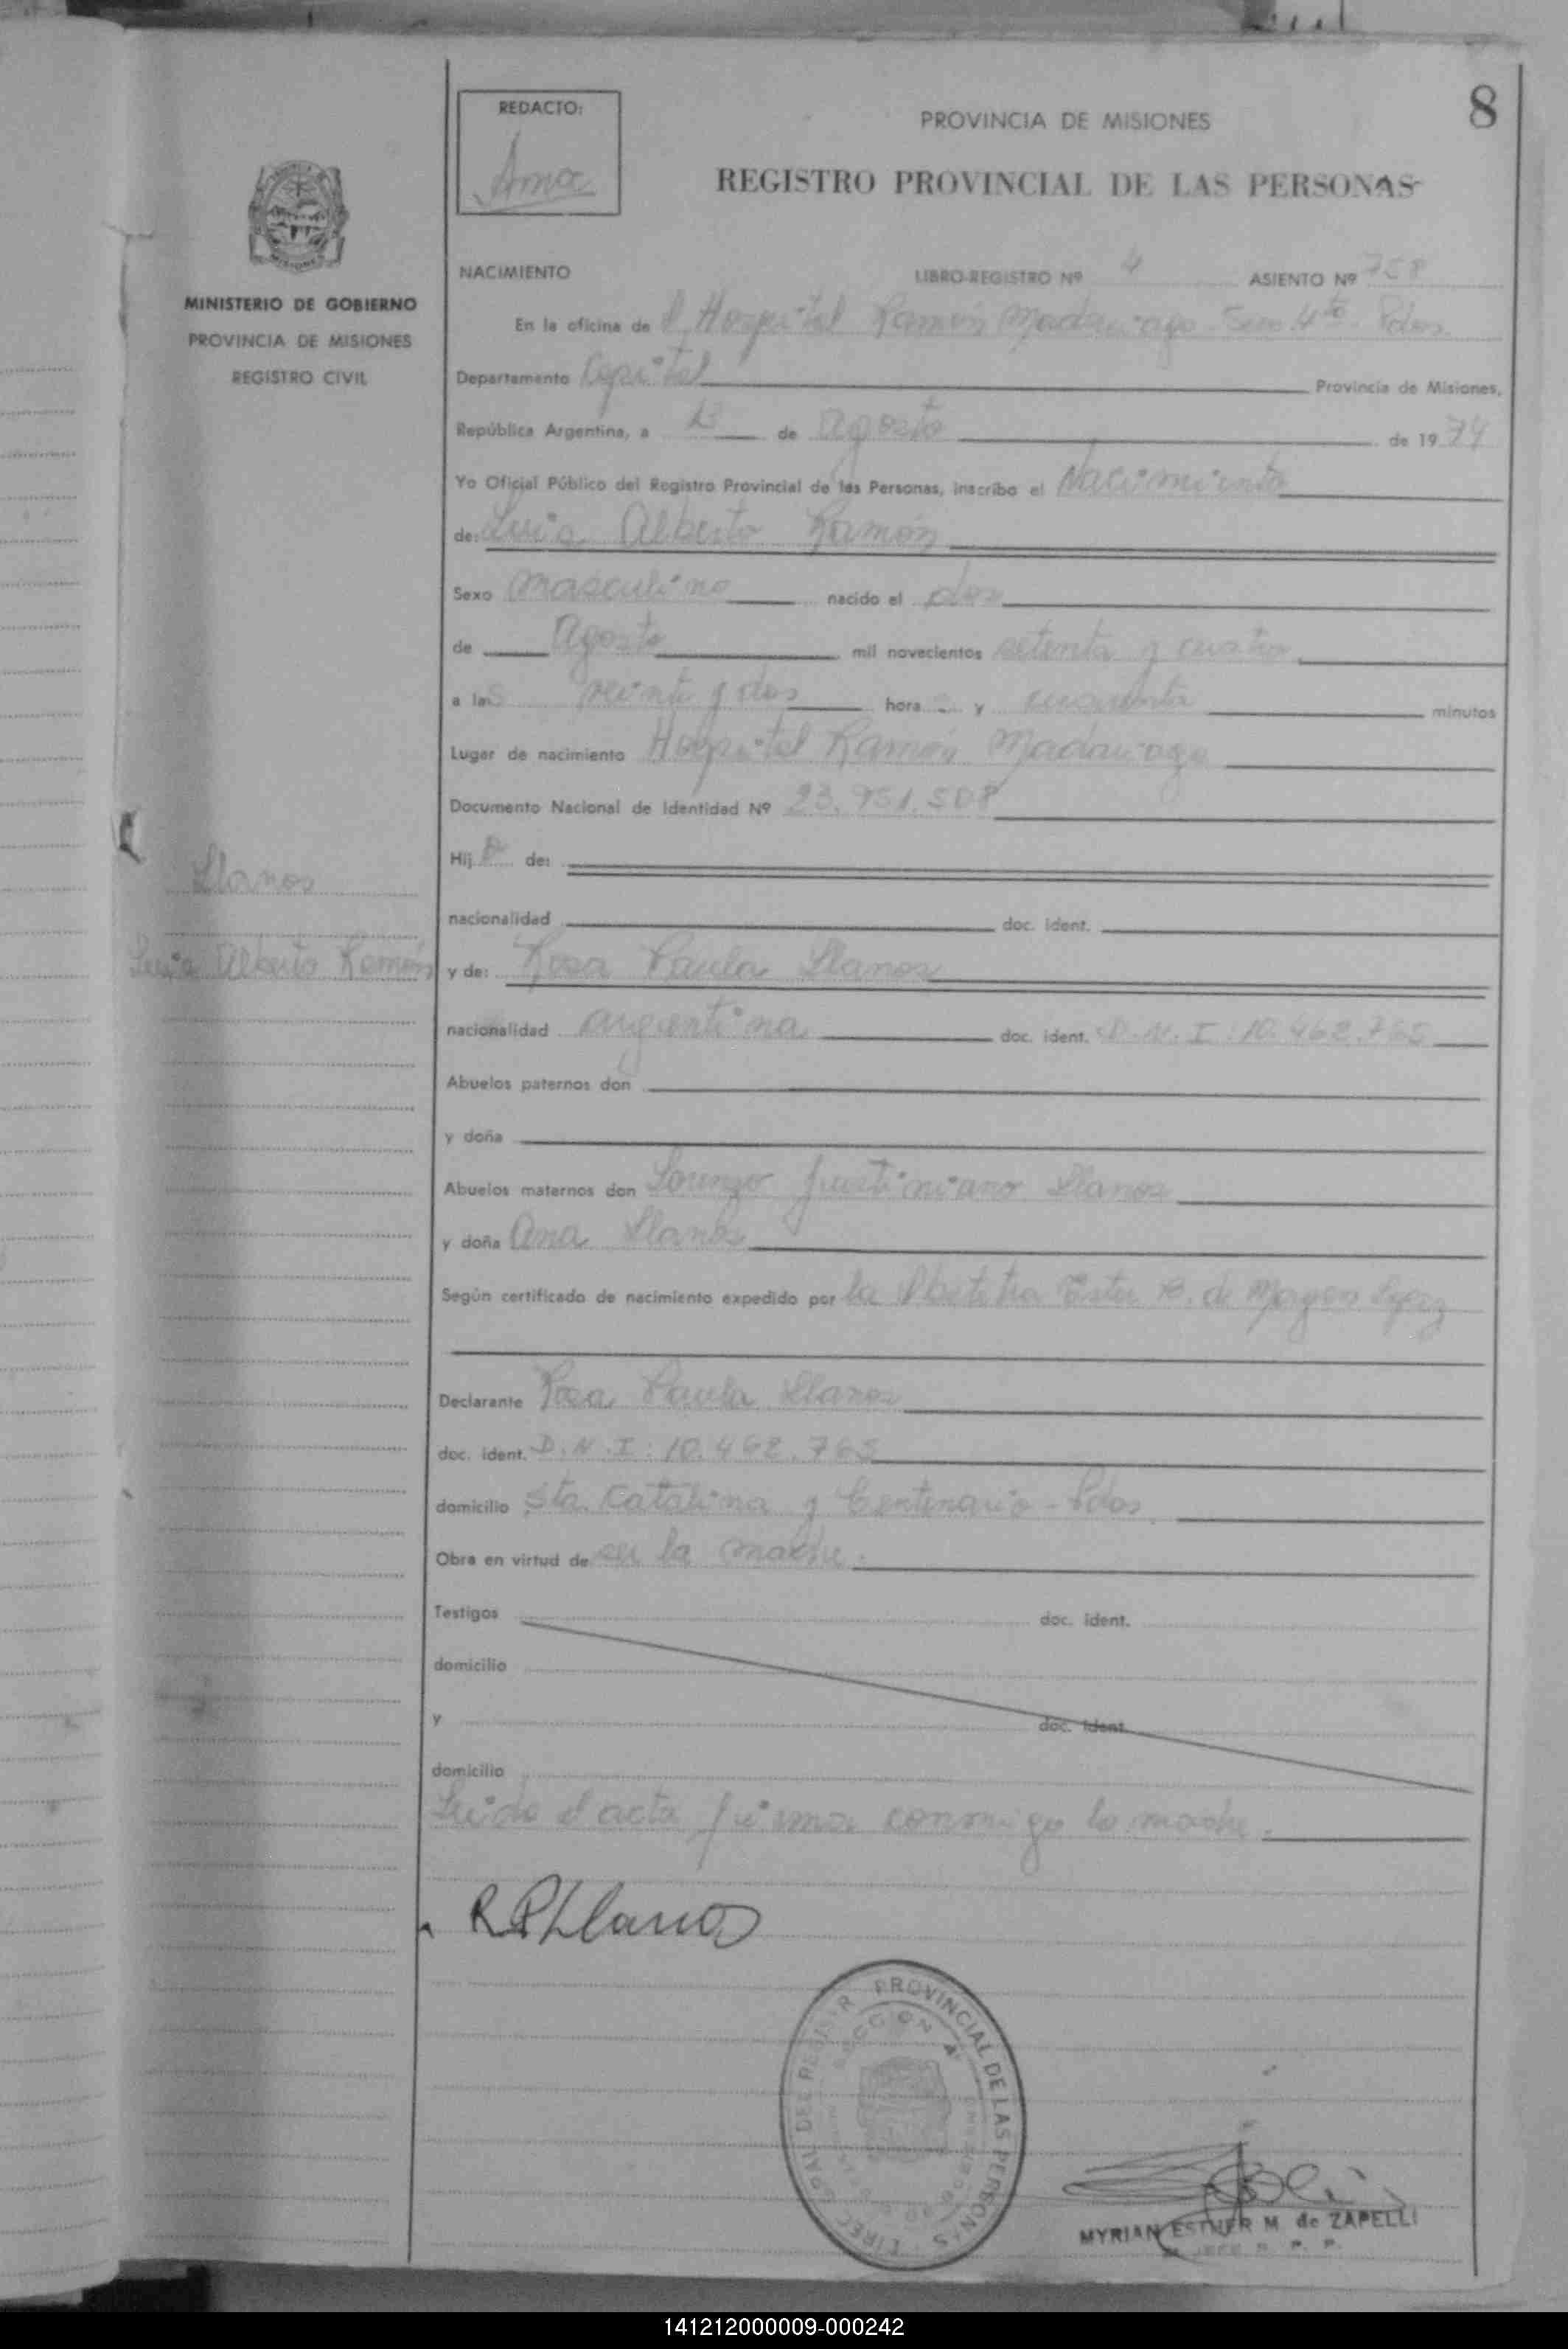 8
REDACTO:
Ama
PROVINCIA DE MISIONES
REGISTRO PROVINCIAL DE LAS PERSONAS
MINISTERIO DE GOBIERNO
PROVINCIA DE MISIONES
REGISTRO CIVIL
NACIMIENTO LIBRO-REGISTRO Nº 4 ASIENTO Nº 758
En la oficina de l Hospital Ramón Madariaga Secc 4ta Pdas
Departamento Capital Provincia de Misiones,
República Argentina, a 13 de Agosto de 1974
Yo Oficial Público del Registro Provincial de las Personas, inscribo el Nacimiento
de: Luis Alberto Ramón
Sexo masculino nacido el dos
de Agosto mil novecientos setenta y cuatro
a las veinte y dos hora s y cuarenta minutos
Lugar de nacimiento Hospital Ramón Madariaga
Documento Nacional de Identidad Nº 23.951.508
Hij o de:
Llanos
nacionalidad doc. ident.
Luis Alberto Ramón
y de: Rosa Paula Llanos
nacionalidad argentina doc. ident. D.N.I. 10.462.765
Abuelos paternos don
y doña
Abuelos maternos don Lorenzo Justiniano Llanos
y doña Ana Llanos
Según certificado de nacimiento expedido por la Obstetra Ester B. de
Declarante Rosa Paula Llanos
doc. ident. D.N.I: 10.462.765
domicilio Sta. Catalina y Centenario - Pdas
Obra en virtud de ser la madre.
Testigos doc. ident.
domicilio
y doc. ident.
domicilio
Leida el acta firma conmigo la madre.
R P Llanos
DIREC. GRAL. DEL REGISTR. PROVINCIAL DE LAS PERSONAS
SECCION 4ª
MYRIAN ESTHER M. de ZAPELLI
JEFE R. P. P.
141212000009-000242